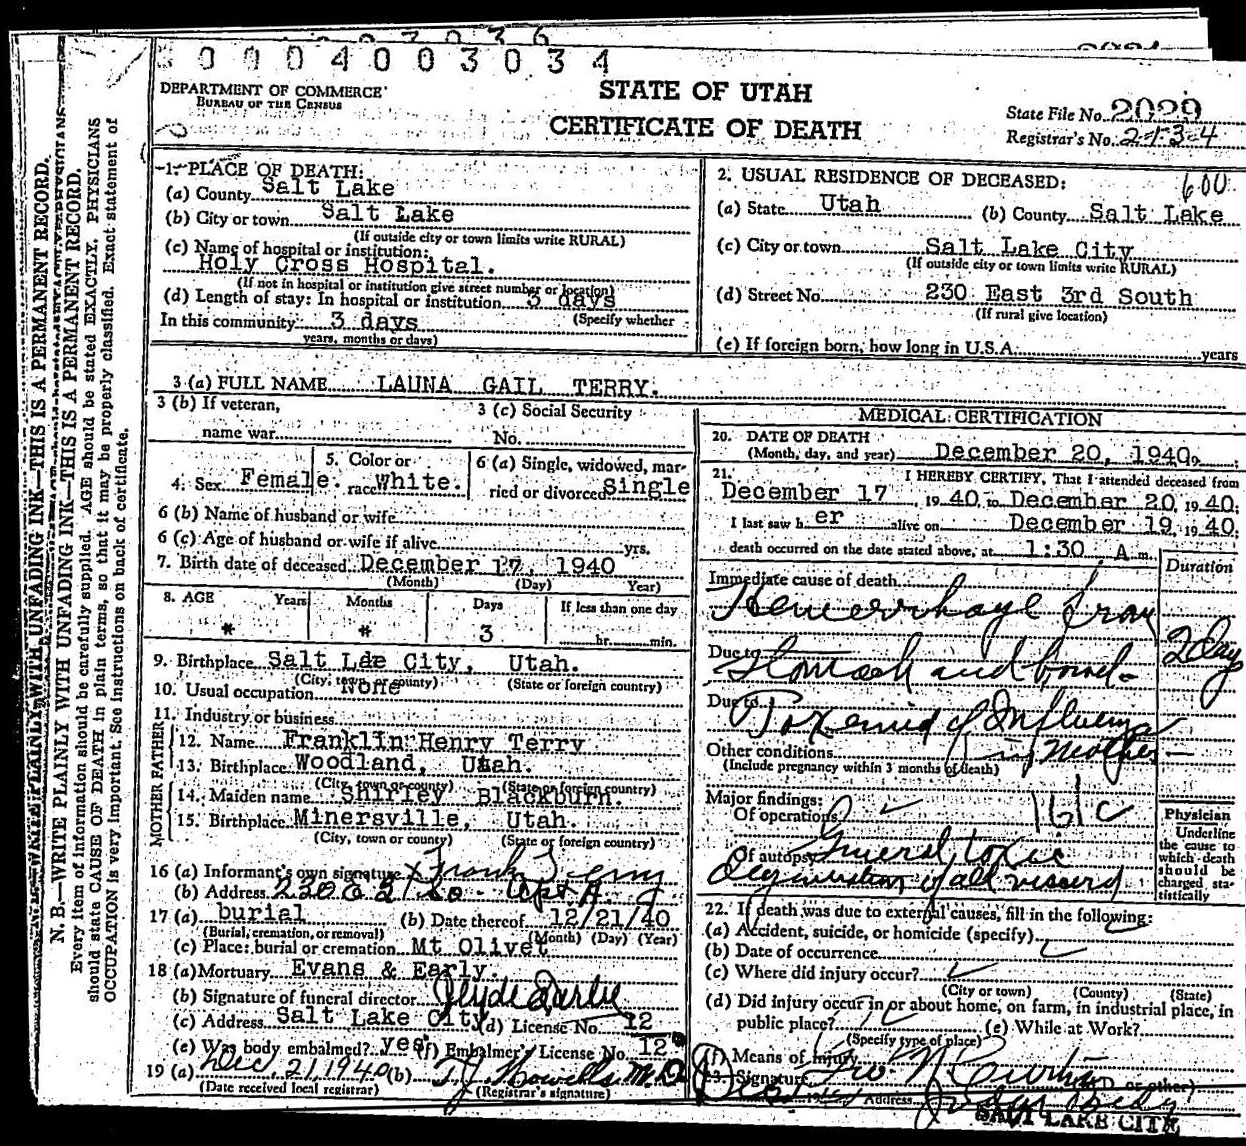 0 0 0 4 0 0 3 0 3 4
DEPARTMENT OF COMMERCE
BUREAU OF THE CENSUS
STATE OF UTAH
CERTIFICATE OF DEATH
State File No. 2029
Registrar's No. 2134
N. B.—WRITE PLAINLY WITH UNFADING INK—THIS IS A PERMANENT RECORD.
Every item of information should be carefully supplied. AGE should be stated EXACTLY, PHYSICIANS
should state CAUSE OF DEATH in plain terms, so that it may be properly classified. Exact statement of
OCCUPATION is very important. See instructions on back of certificate.
1. PLACE OF DEATH:
(a) County Salt Lake
(b) City or town Salt Lake
(If outside city or town limits write RURAL)
(c) Name of hospital or institution:
Holy Cross Hospital.
(If not in hospital or institution give street number or location)
(d) Length of stay: In hospital or institution 3 days
(Specify whether
In this community 3 days
years, months or days)
2. USUAL RESIDENCE OF DECEASED: 600
(a) State Utah (b) County Salt Lake
(c) City or town Salt Lake City
(If outside city or town limits write RURAL)
(d) Street No. 230 East 3rd South
(If rural give location)
(e) If foreign born, how long in U.S.A. years
3 (a) FULL NAME LAUNA GAIL TERRY.
3 (b) If veteran, name war
3 (c) Social Security No.
4. Sex Female. 5. Color or race White. 6 (a) Single, widowed, married or divorced Single
6 (b) Name of husband or wife
6 (c) Age of husband or wife if alive yrs.
7. Birth date of deceased December 17, 1940
(Month) (Day) Year)
8. AGE Years Months Days If less than one day
* * 3 hr. min.
9. Birthplace Salt Lke City, Utah.
(City, town or county) (State or foreign country)
10. Usual occupation None
11. Industry or business
FATHER
12. Name Franklin Henry Terry
13. Birthplace Woodland, Utah.
(City town or county) (State or foreign country)
MOTHER
14. Maiden name Shirley Blackburn.
15. Birthplace Minersville, Utah.
(City, town or county) (State or foreign country)
16 (a) Informant's own signature x Frank Terry
(b) Address 230 E 3 So - Apt A.
17 (a) burial (b) Date thereof 12/21/40
(Burial, cremation, or removal) (Month) (Day) (Year)
(c) Place: burial or cremation Mt Olivet
18 (a) Mortuary Evans & Early.
(b) Signature of funeral director Clyde Earle
(c) Address Salt Lake City (d) License No. 12
(e) Was body embalmed? yes (f) Embalmer's License No. 12
19 (a) Dec. 21, 1940 (b) T. J. Howells M.D.
(Date received local registrar) (Registrar's signature)
MEDICAL CERTIFICATION
20. DATE OF DEATH
(Month, day, and year) December 20, 1940.
21. I HEREBY CERTIFY, That I attended deceased from
December 17, 1940, to December 20, 1940;
I last saw h er alive on December 19, 1940;
death occurred on the date stated above, at 1:30 A m.
Duration
Immediate cause of death
Hemorrhage from
Due to Stomach and bowel- 2 day
Due to Toxemia of Influenza
in Mother
Other conditions
(Include pregnancy within 3 months of death)
Major findings:
Of operations
161c
Of autopsy General toxic
Degeneration of all viscera
Physician
Underline
the cause to
which death
should be
charged sta-
tistically
22. If death was due to external causes, fill in the following:
(a) Accident, suicide, or homicide (specify)
(b) Date of occurrence
(c) Where did injury occur?
(City or town) (County) (State)
(d) Did injury occur in or about home, on farm, in industrial place, in
public place? (e) While at Work?
(Specify type of place)
(f) Means of Injury
23. Signature (M.D. or other)
Address Judge Bldg
SALT LAKE CITY